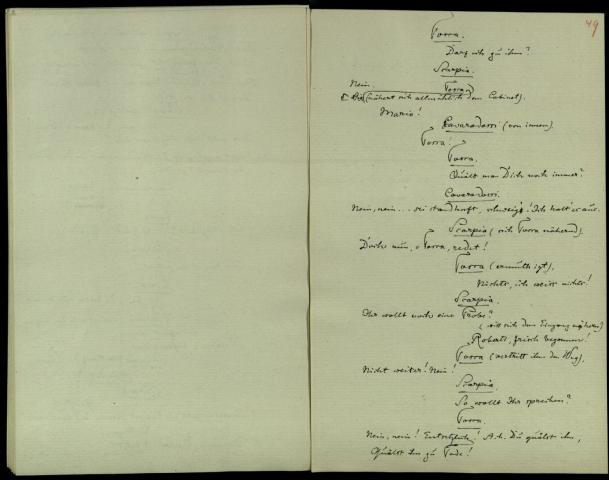 49
Tosca.
Darf ich zu ihm?
Scarpia.
Nein.
Tosca
(nähert sich allmählich dem Cabinet).
Mario!
Cavaradossi (von innen).
Tosca!
Tosca.
Quält man Dich noch immer?
Cavaradossi.
Nein, nein... sei standhaft, schweig! Ich halt' es aus.
Scarpia (sich Tosca nähernd).
Doch nun, o Tosca, redet!
Tosca (ermuthigt).
Nichts, ich weiss nichts!
Scarpia.
Ihr wollt noch eine Probe?
(will sich dem Eingang nähern)
Roberti, frisch begonnen!
Tosca (vertritt ihm den Weg).
Nicht weiter! Nein!
Scarpia.
So wollt Ihr sprechen?
Tosca.
Nein, nein! Entsetzlich! Ah. Du quälst ihn,
Quälst ihn zu Tode!